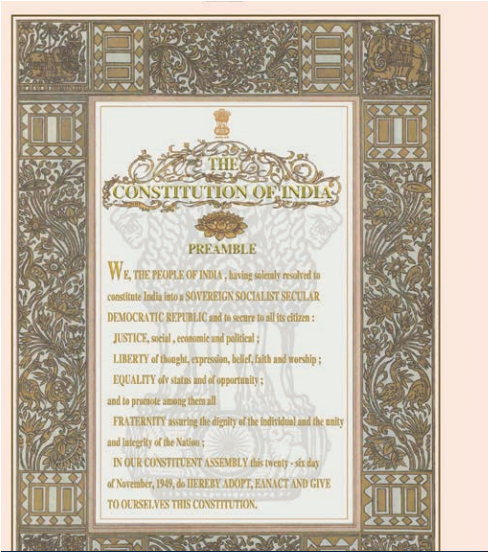 THE
CONSTITUTION OF INDIA
PREAMBLE
WE, THE PEOPLE OF INDIA , having solemly resolved to
constitute India into a SOVEREIGN SOCIALIST SECULAR
DEMOCRATIC REPUBLIC and to secure to all its citizen :
JUSTICE, social , economic and political ;
LIBERTY of thought, expression, belief, faith and worship ;
EQUALITY ofv status and of opportunity ;
and to promote among them all
FRATERNITY assuring the dignity of the individual and the unity
and integrity of the Nation ;
IN OUR CONSTITUENT ASSEMBLY this twenty - six day
of November, 1949, do HEREBY ADOPT, EANACT AND GIVE
TO OURSELVES THIS CONSTITUTION.